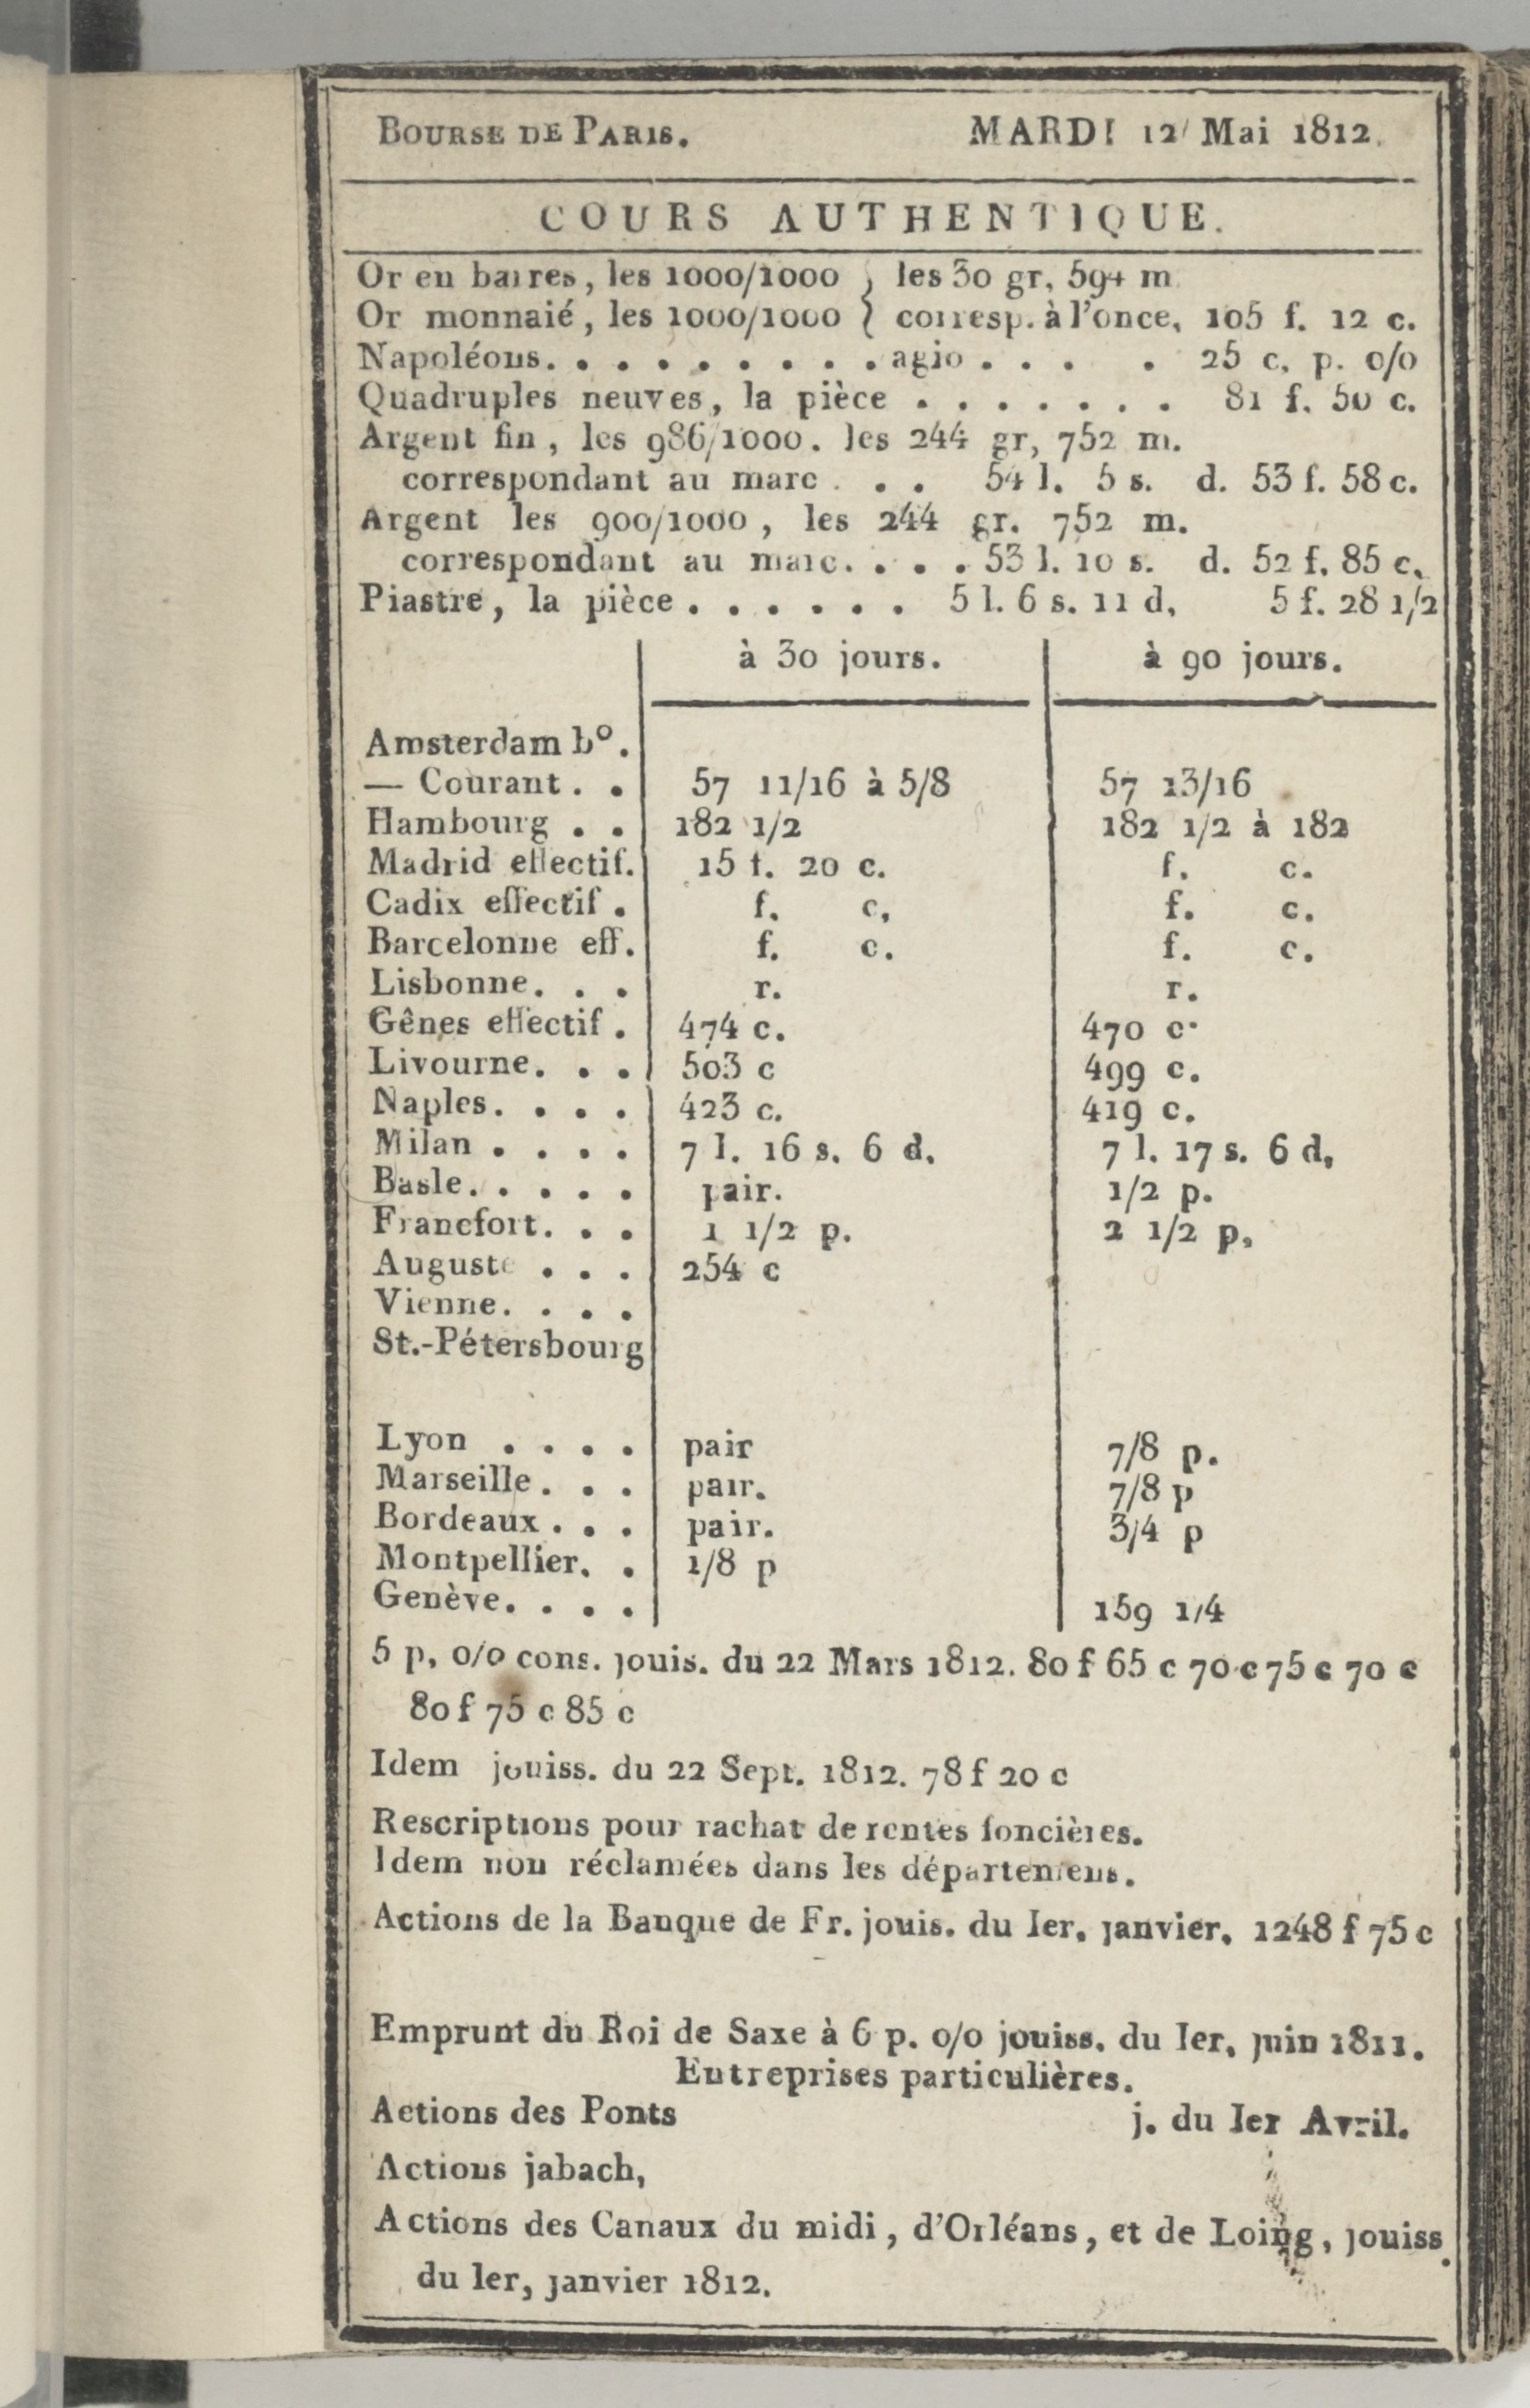 BOURSE DE PARIS. MARDI 12 Mai 1812.
COURS AUTHENTIQUE.
Or en barres, les 1000/1000 } les 30 gr, 594 m
Or monnaié, les 1000/1000 { corresp. à l'once, 105 f. 12 c.
Napoléons. . . . . . . . . agio . . . . 25 c, p. 0/0
Quadruples neuves, la pièce . . . . . . . 81 f. 50 c.
Argent fin, les 986/1000. les 244 gr, 752 m.
correspondant au marc . . . 54 l. 5 s. d. 53 f. 58 c.
Argent les 900/1000, les 244 gr. 752 m.
correspondant au marc. . . . 53 l. 10 s. d. 52 f. 85 c.
Piastre, la pièce . . . . . . 5 l. 6 s. 11 d, 5 f. 28 1/2
à 30 jours. à 90 jours.
Amsterdam b°.
— Courant . . 57 11/16 à 5/8 57 13/16
Hambourg . . 182 1/2 182 1/2 à 182
Madrid effectif. 15 f. 20 c. f. c.
Cadix effectif . f. c, f. c.
Barcelonne eff. f. c. f. c.
Lisbonne. . . r. r.
Gênes effectif . 474 c. 470 c.
Livourne. . . 503 c 499 c.
Naples. . . . 423 c. 419 c.
Milan . . . . 7 l. 16 s. 6 d. 7 l. 17 s. 6 d,
Basle. . . . . pair. 1/2 p.
Francfort. . . 1 1/2 p. 2 1/2 p,
Auguste . . . 254 c
Vienne. . . .
St.-Pétersbourg
Lyon . . . . pair 7/8 p.
Marseille . . . pair. 7/8 p
Bordeaux . . . pair. 3/4 p
Montpellier. . 1/8 p
Genève. . . . 159 1/4
5 p, 0/0 cons. jouis. du 22 Mars 1812. 80 f 65 c 70 c 75 c 70 c
80 f 75 c 85 c
Idem jouiss. du 22 Sept. 1812. 78 f 20 c
Rescriptions pour rachat de rentes foncières.
Idem non réclamées dans les départemens.
Actions de la Banque de Fr. jouis. du Ier, janvier, 1248 f 75 c
Emprunt du Roi de Saxe à 6 p. 0/0 jouiss. du Ier, juin 1811.
Entreprises particulières.
Actions des Ponts j. du Ier Avril.
Actions jabach,
Actions des Canaux du midi, d'Orléans, et de Loing, jouiss.
du Ier, janvier 1812.